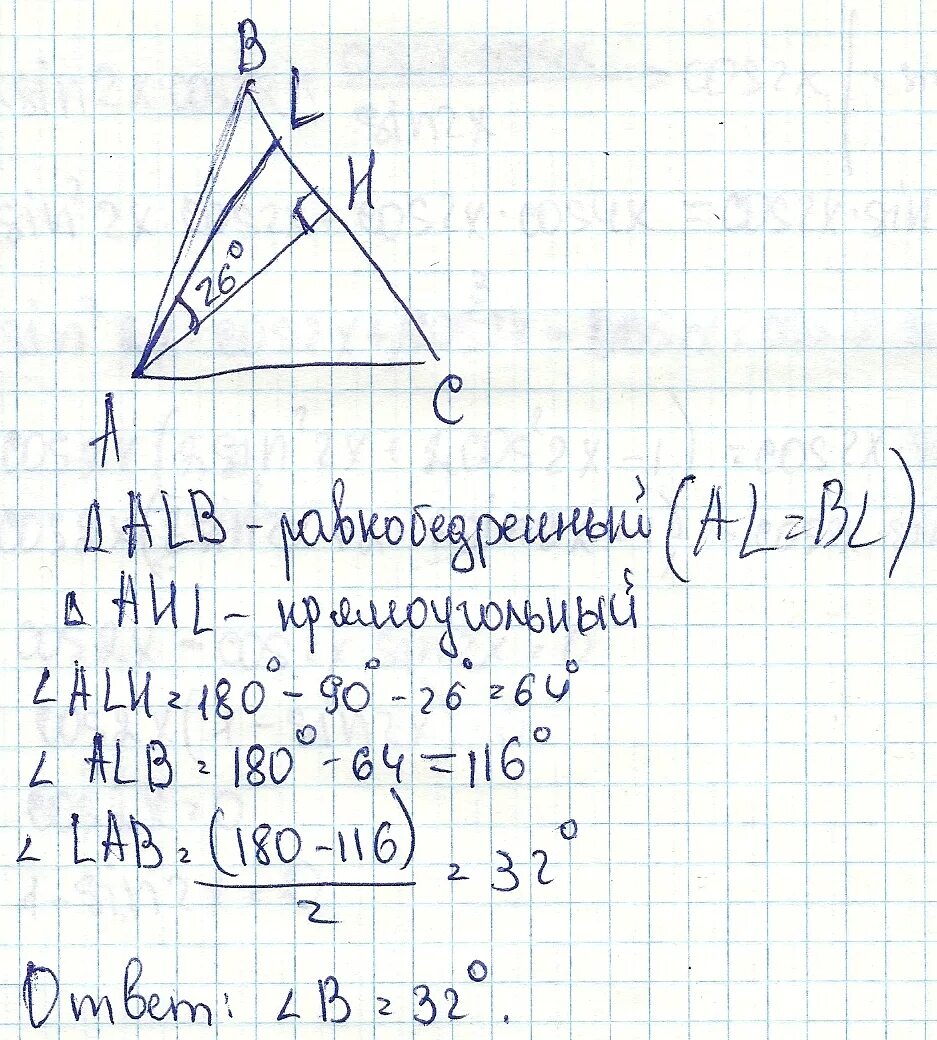 B
L
H
26°
A
C
Δ ALB - равнобедренный (AL = BL)
Δ AHL - прямоугольный
∠ ALH = 180° - 90° - 26° = 64°
∠ ALB = 180° - 64 = 116°
∠ LAB = (180 - 116) / 2 = 32°
Ответ: ∠ B = 32°.